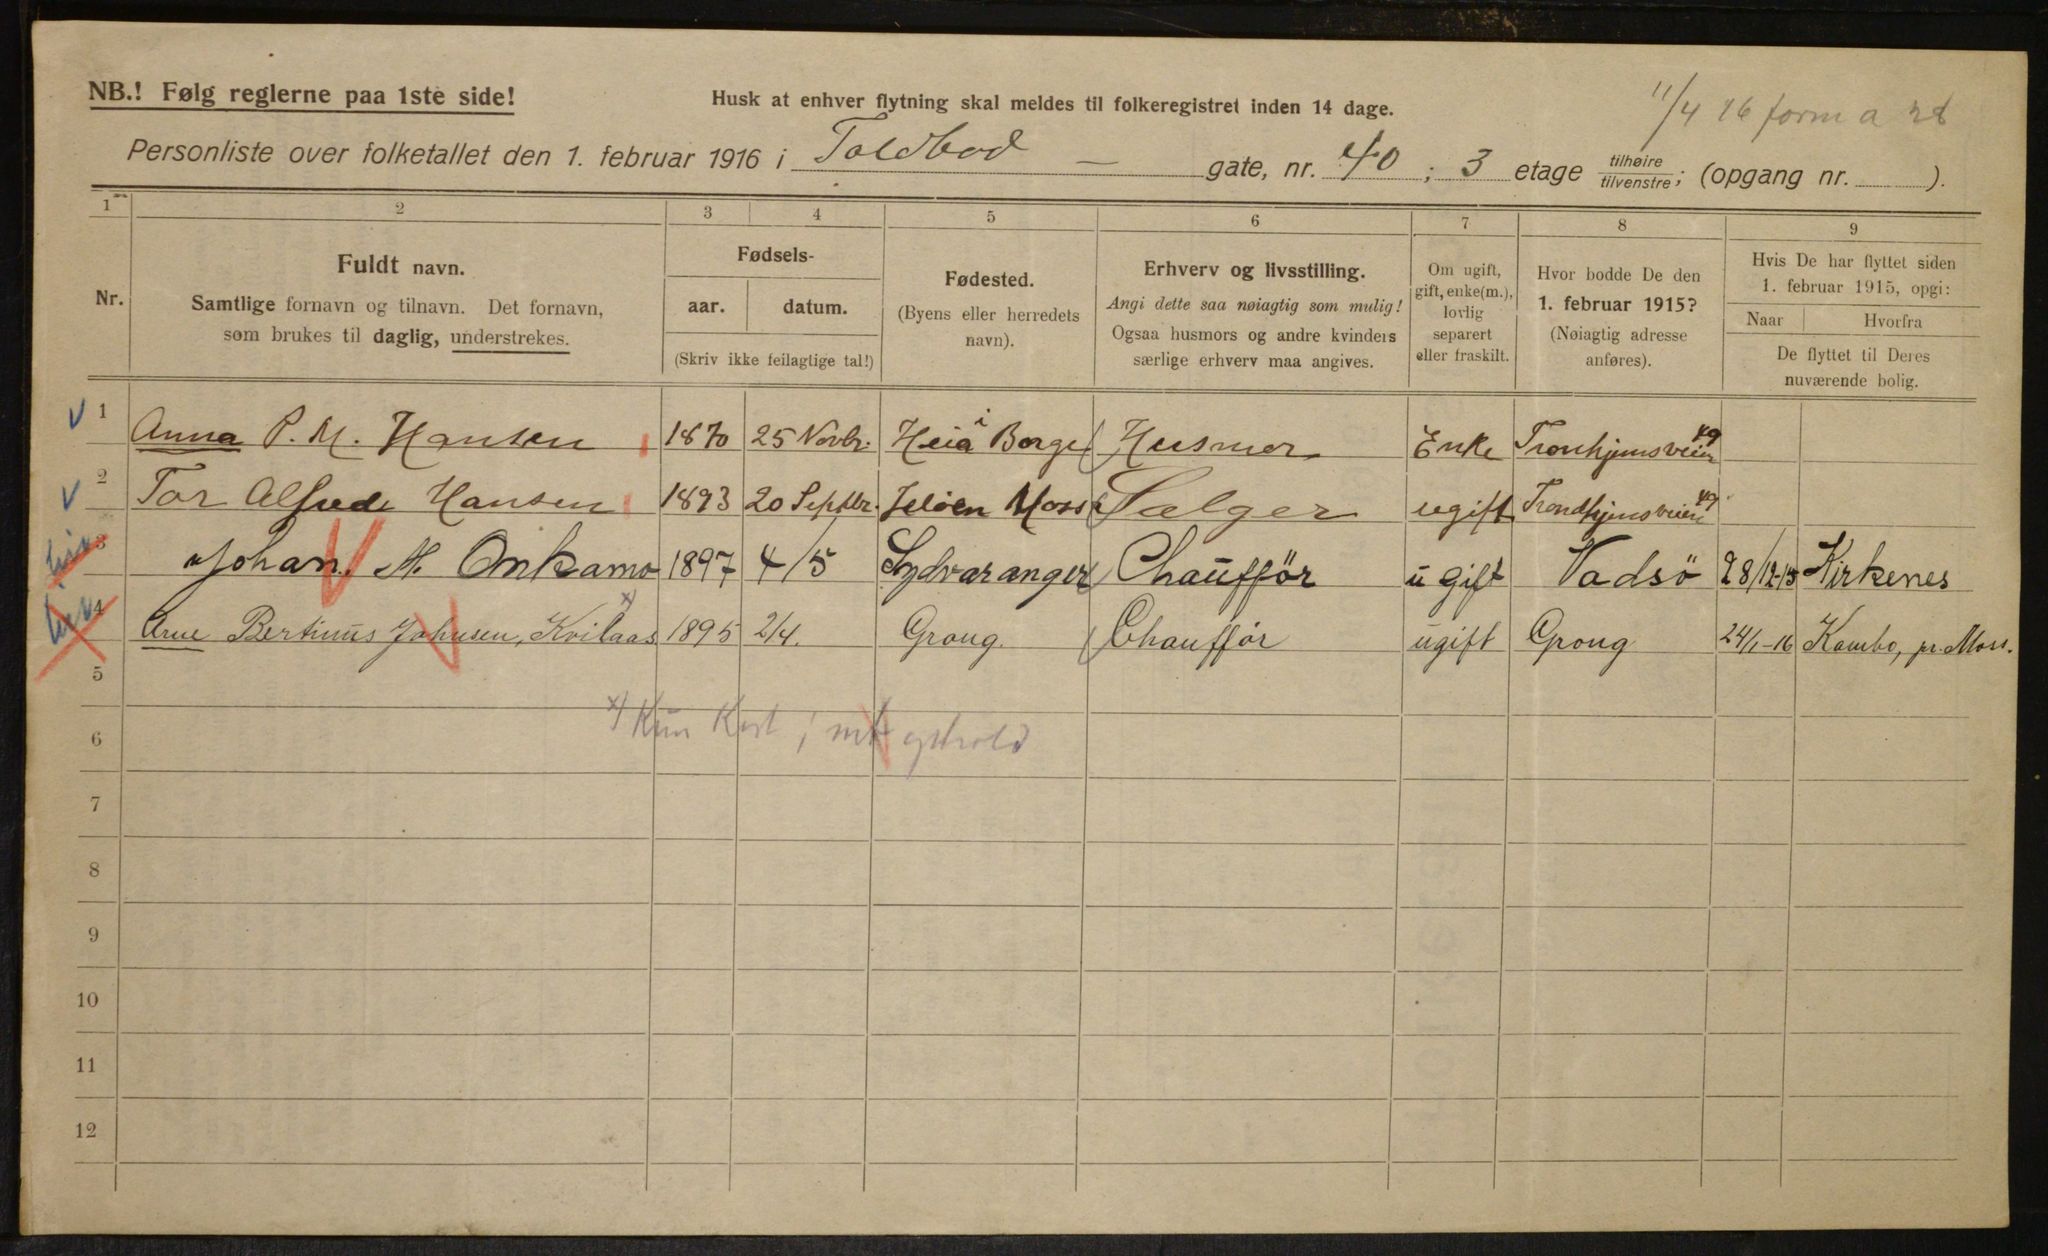 NB.! Følg reglerne paa 1ste side!
Husk at enhver flytning skal meldes til folkeregistret inden 14 dage.
11/4 16 form a 28
Personliste over folketallet den 1. februar 1916 i Toldbod — gate, nr. 40 ; 3 etage tilhøire/tilvenstre; (opgang nr. ).
1 2 3 4 5 6 7 8 9
Nr.
Fuldt navn.
Samtlige fornavn og tilnavn. Det fornavn,
som brukes til daglig, understrekes.
Fødsels-
aar. datum.
(Skriv ikke feilagtige tal!)
Fødested.
(Byens eller herredets
navn).
Erhverv og livsstilling.
Angi dette saa nøiagtig som mulig!
Ogsaa husmors og andre kvinders
særlige erhverv maa angives.
Om ugift,
gift, enke(m.),
lovlig
separert
eller fraskilt.
Hvor bodde De den
1. februar 1915?
(Nøiagtig adresse
anføres).
Hvis De har flyttet siden
1. februar 1915, opgi:
Naar Hvorfra
De flyttet til Deres
nuværende bolig.
1 Anna P. M. Hansen 1870 25 Novbr. Heia i Borge Husmor Enke Tronhjemsveien 49
2 Tor Alfred Hansen 1893 20 Septbr. Jeløen Moss Sælger ugift Trondhjemsveien 49
3 Johan. M. Onkamo 1897 4/5 Sydvaranger Chaufför ugift Vadsö 28/12-15 Kirkenes
4 Arne Bertinus Johnsen, Kvilaas x) 1895 2/4. Grong. Chauffør ugift Grong 24/1-16 Kambo, pr. Moss.
5
x) Kun Kost,
6
7
8
9
10
11
12